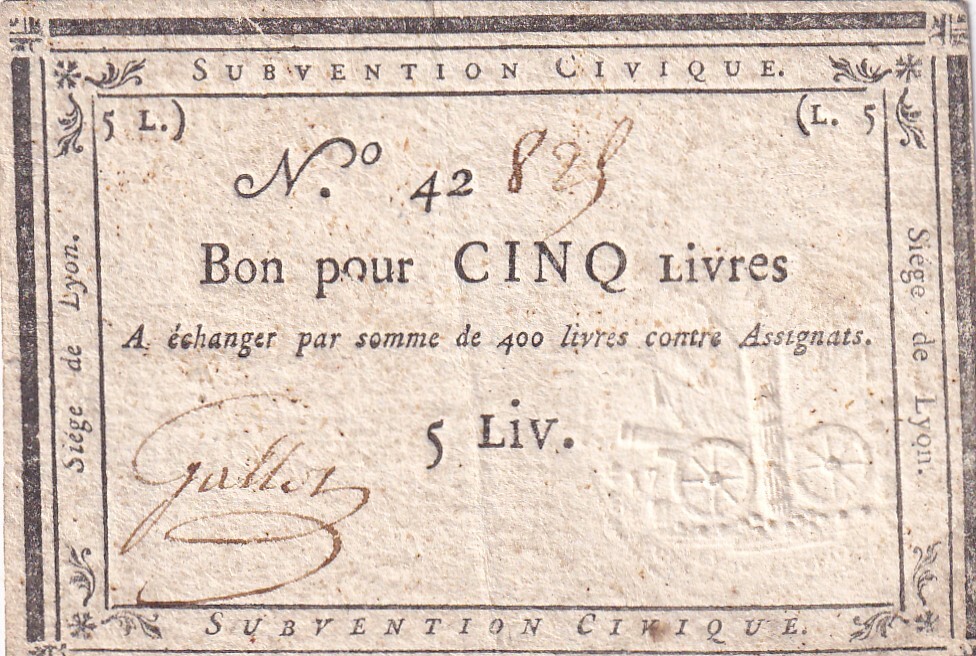 SUBVENTION CIVIQUE.
5 L.)
(L. 5
N.º 42 825
Bon pour CINQ Livres
A échanger par somme de 400 livres contre Assignats.
5 Liv.
Siége de Lyon.
Siége de Lyon.
SUBVENTION CIVIQUE.